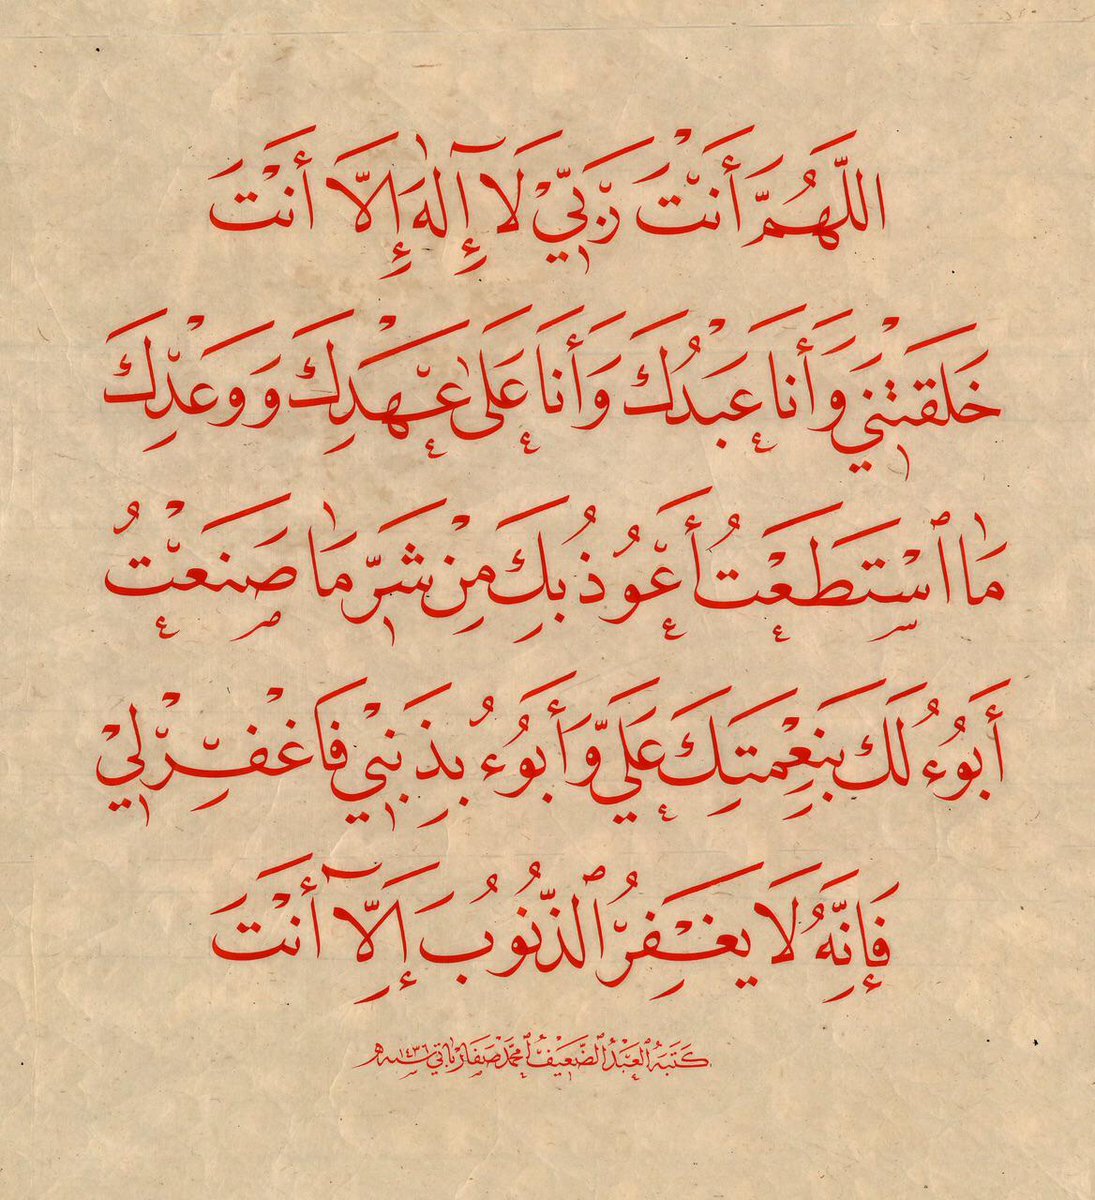 اللَّهُمَّ أَنْتَ رَبِّيْ لَا إِلٰهَ إِلَّا أَنْتَ
خَلَقْتَنِيْ وَأَنَا عَبْدُكَ وَأَنَا عَلَىٰ عَهْدِكَ وَوَعْدِكَ
مَا ٱسْتَطَعْتُ أَعُوذُ بِكَ مِنْ شَرِّ مَا صَنَعْتُ
أَبُوءُ لَكَ بِنِعْمَتِكَ عَلَيَّ وَأَبُوءُ بِذَنْبِيْ فَاغْفِرْ لِيْ
فَإِنَّهُ لَا يَغْفِرُ ٱلذُّنُوبَ إِلَّا أَنْتَ
كَتَبَهُ ٱلْعَبْدُ ٱلضَّعِيفُ مُحَمَّد صَفَار بَاتِي سنة ١٤٣٦ه